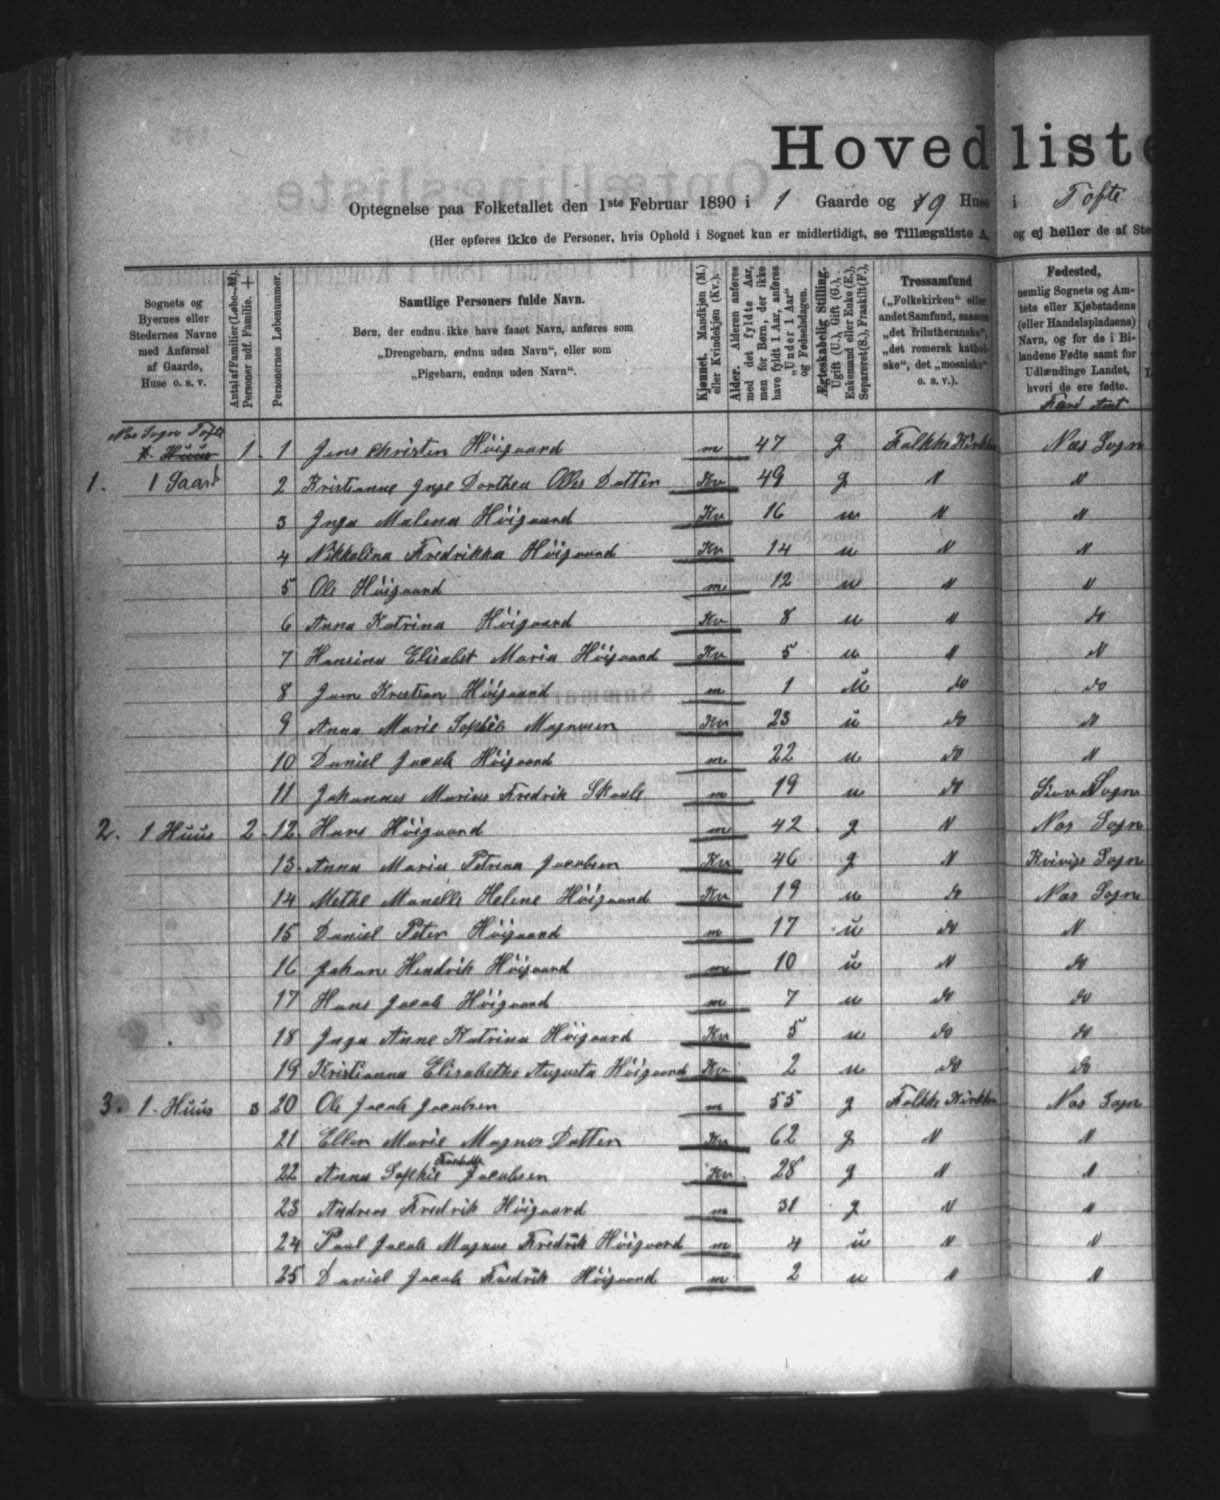 Hovedliste
Optegnelse paa Folketallet den 1ste Februar 1890 i 1 Gaarde og 19 Huse i Tofte
(Her opføres ikke de Personer, hvis Ophold i Sognet kun er midlertidigt, se Tillægsliste A, og ej heller de af Ste
Sognets og Byernes eller Stedernes Navne med Anførsel af Gaarde, Huse o. s. v.
Antal af Familier (Løbe-M). Personer udf. Familie. +
Personernes Løbenummer.
Samtlige Personers fulde Navn.
Børn, der endnu ikke have faaet Navn, anføres som
„Drengebarn, endnu uden Navn", eller som
„Pigebarn, endnu uden Navn".
Kjønnet. Mandkjøn (M.) eller Kvindekjøn (Kv.).
Alder. Alderen anføres med det fyldte Aar, men for Børn, der ikke have fyldt 1 Aar, anføres „Under 1 Aar" og Fødselsdagen.
Ægteskabelig Stilling. Ugift (U.), Gift (G.), Enkemand eller Enke (E.), Separeret (S.), Fraskilt (F.),
Trossamfund („Folkekirken" eller andet Samfund, saasom „det frilutheranske", „det romersk katholske", „det mosaiske" o. s. v.).
Fødested, nemlig Sognets og Amtets eller Kjøbstadens (eller Handelspladsens) Navn, og for de i Bilandene Fødte samt for Udlændinge Landet, hvori de ere fødte.
Færø Amt
Nes Sogn Tofte
1. Huus 1 1 Jens Christen Höigaard m 47 g Folkke Kirkken Næs Sogn
1. 1 Gaard 2 Kristianne Inge Dorthea Olles Datter Kv 49 g " "
3 Inga Malena Höigaard Kv 16 u " "
4 Nikkolina Fredrikka Höigaard Kv 14 u " "
5 Ole Höigaard m 12 u " "
6 Anna Katrina Höigaard Kv 8 u " do
7 Hansina Elisabet Maria Höigaard Kv 5 u " "
8 Jens Kristian Höigaard m 1 u do do
9 Anna Marie Sophie Magnusen Kv 23 u do do
10 Daniel Jacob Höigaard m 22 u do "
11 Johannes Marius Fredrik Skaale m 19 u do Sogn
2. 1 Huus 2 12 Hans Höigaard m 42 g " Næs Sogn
13 Anna Maria Petrena Jacobsen Kv 46 g " Kvivige Sogn
14 Methe Manelle Helene Höigaard Kv 19 u do Næs Sogn
15 Daniel Peter Höigaard m 17 u do "
16 Johan Hendrik Höigaard m 10 u " do
17 Hans Jacob Höigaard m 7 u do do
18 Inga Anne Katrina Höigaard Kv 5 u do do
19 Kristianna Elisabethe Augusta Höigaard Kv 2 u do do
3. 1 Huus 3 20 Ole Jacob Jacobsen m 55 g Folkke Kirkken Næs Sogn
21 Ellen Marie Magnus Datter Kv 62 g " "
22 Anna Sophie Jacobsen Kv 28 g " "
23 Andreas Fredrik Höigaard m 31 g " "
24 Paul Jacob Magnus Fredrik Höigaard m 4 u " "
25 Daniel Jacob Fredrik Höigaard m 2 u " "